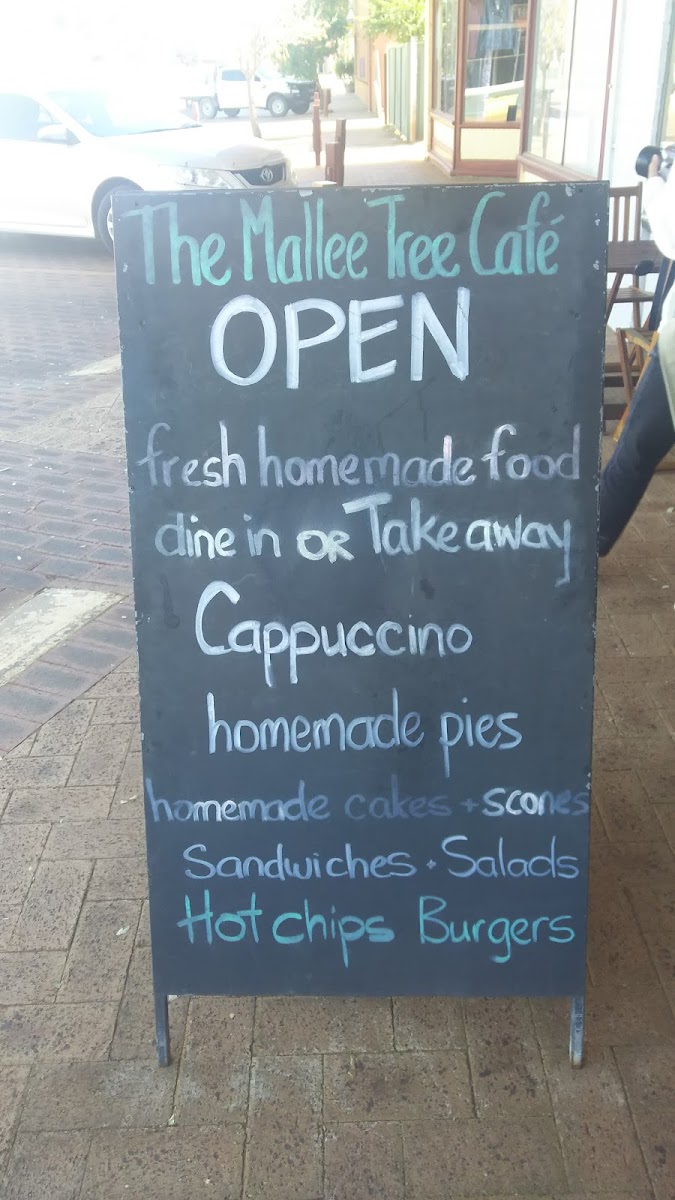 The Mallee Tree Café
OPEN
fresh homemade food
dine in OR Take away
Cappuccino
homemade pies
homemade cakes + scones
Sandwiches • Salads
Hot chips Burgers